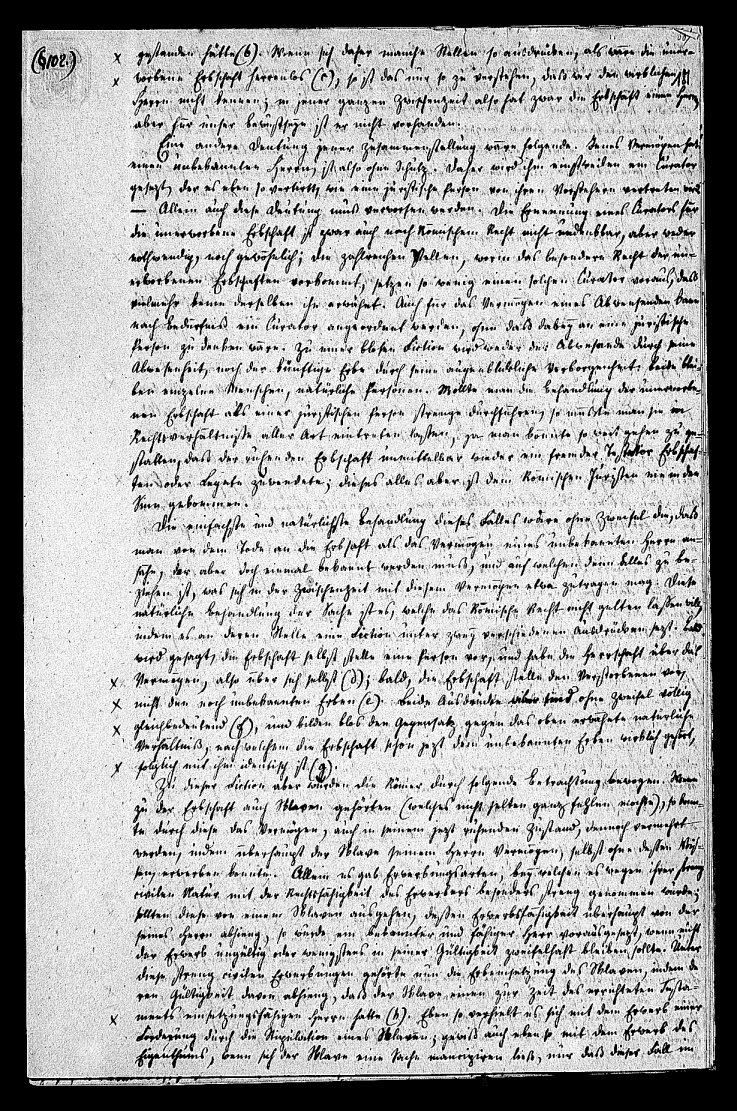 (§102.)
181
gestanden hätte (b). Wenn sich daher manche Stellen so ausdrücken, als wäre die uner-
worbene Erbschaft herrenlos (c), so ist das nur so zu verstehen, daß wir den wirklichen
Herrn nicht kennen; in jener ganzen Zwischenzeit also hat zwar die Erbschaft einen Herrn,
aber für unser Bewußtseyn ist er nicht vorhanden.
Eine andere Deutung jener Zusammenstellung wäre folgende. Jenes Vermögen hat
einen unbekannten Herrn, ist also ohne Schutz. Daher wird ihm einstweilen ein Curator
gesetzt, der es eben so vertritt, wie eine juristische Person von ihren Vorstehern vertreten wird
— Allein auch diese Deutung muß verworfen werden. Die Ernennung eines Curators für
die unerworbene Erbschaft ist zwar auch nach Römischem Recht nicht undenkbar, aber weder
nothwendig, noch gewöhnlich; die zahlreichen Stellen, worin das besondere Recht der un-
erworbenen Erbschaften vorkommt, setzen so wenig einen solchen Curator voraus, daß
vielmehr keine derselben ihn erwähnt. Auch für das Vermögen eines Abwesenden kann
nach Bedürfniß ein Curator angeordnet werden, ohne daß dabey an eine juristische
Person zu denken wäre. Zu einer bloßen Fiction wird weder der Abwesende durch seine
Abwesenheit, noch der künftige Erbe durch seine augenblickliche Verborgenheit; beide blei-
ben einzelne Menschen, natürliche Personen. Wollte man die Behandlung der unerworbe-
nen Erbschaft als einer juristischen Person strenge durchführen, so müßte man sie in
Rechtsverhältnisse aller Art eintreten lassen, ja man könnte so weit gehen zu ge-
statten, daß der ruhenden Erbschaft unmittelbar wieder ein fremder Testator Erbschaf-
ten oder Legate zuwendete; dieses alles aber ist dem Römischen Juristen nie in den
Sinn gekommen.
Die einfachste und natürlichste Behandlung dieses Falles wäre ohne Zweifel die, daß
man von dem Tode an die Erbschaft als das Vermögen eines unbekannten Herrn an-
sähe, der aber doch einmal bekannt werden muß, und auf welchen dann alles zu be-
ziehen ist, was sich in der Zwischenzeit mit diesem Vermögen etwa zutragen mag. Diese
natürliche Behandlung der Sache ist es, welche das Römische Recht nicht gelten lassen will,
indem es an deren Stelle eine Fiction unter zwey verschiedenen Ausdrücken setzt. Bald
wird gesagt, die Erbschaft selbst stelle eine Person vor, und habe die Herrschaft über das
Vermögen, also über sich selbst (d); bald, die Erbschaft stelle den Verstorbenen vor,
nicht den noch unbekannten Erben (e). Beide Ausdrücke sind ohne Zweifel völlig
gleichbedeutend (f), und bilden blos den Gegensatz gegen das oben erwähnte natürliche
Verhältniß, nach welchem die Erbschaft schon jetzt dem unbekannten Erben wirklich gehört,
folglich mit ihm identisch ist (g).
Zu dieser Fiction aber wurden die Römer durch folgende Betrachtung bewogen. Wenn
zu der Erbschaft auch Sklaven gehörten (welches nicht selten ganz fehlen mochte), so konn-
te durch diese das Vermögen, auch in seinem jetzt ruhenden Zustand, dennoch vermehrt
werden, indem überhaupt der Sklave seinem Herrn Vermögen, selbst ohne dessen Wis-
sen, erwerben konnte. Allein es gab Erwerbungsarten, bey welchen es wegen ihrer streng
civilen Natur mit der Rechtsfähigkeit des Erwerbers besonders streng genommen wurde;
sollten diese von einem Sklaven ausgehen, dessen Erwerbsfähigkeit überhaupt von der
seines Herrn abhieng, so wurde ein bekannter und fähiger Herr vorausgesetzt, wenn nicht
der Erwerb ungültig oder wenigstens in seiner Gültigkeit zweifelhaft bleiben sollte. Unter
diese streng civilen Erwerbungen gehörte nun die Erbeinsetzung des Sklaven, indem de-
ren Gültigkeit davon abhieng, daß der Sklave einen zur Zeit des errichteten Testa-
ments einsetzungsfähigen Herrn hatte (h). Eben so verhielt es sich mit dem Erwerb einer
Forderung durch die Stipulation eines Sklaven; gewiß auch eben so mit dem Erwerb des
Eigenthums, wenn sich der Sklave eine Sache mancipiren ließ, nur daß dieser Fall in